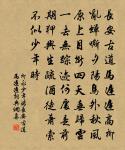 長安古道馬遲遲高柳
亂蟬嘶夕陽鳥外秋風
原上目斷四天垂歸雲
一去無蹤跡何處是前
期狎興生疏酒徒蕭索
不似少年時
柳永少年游長安古道
馬遲遲